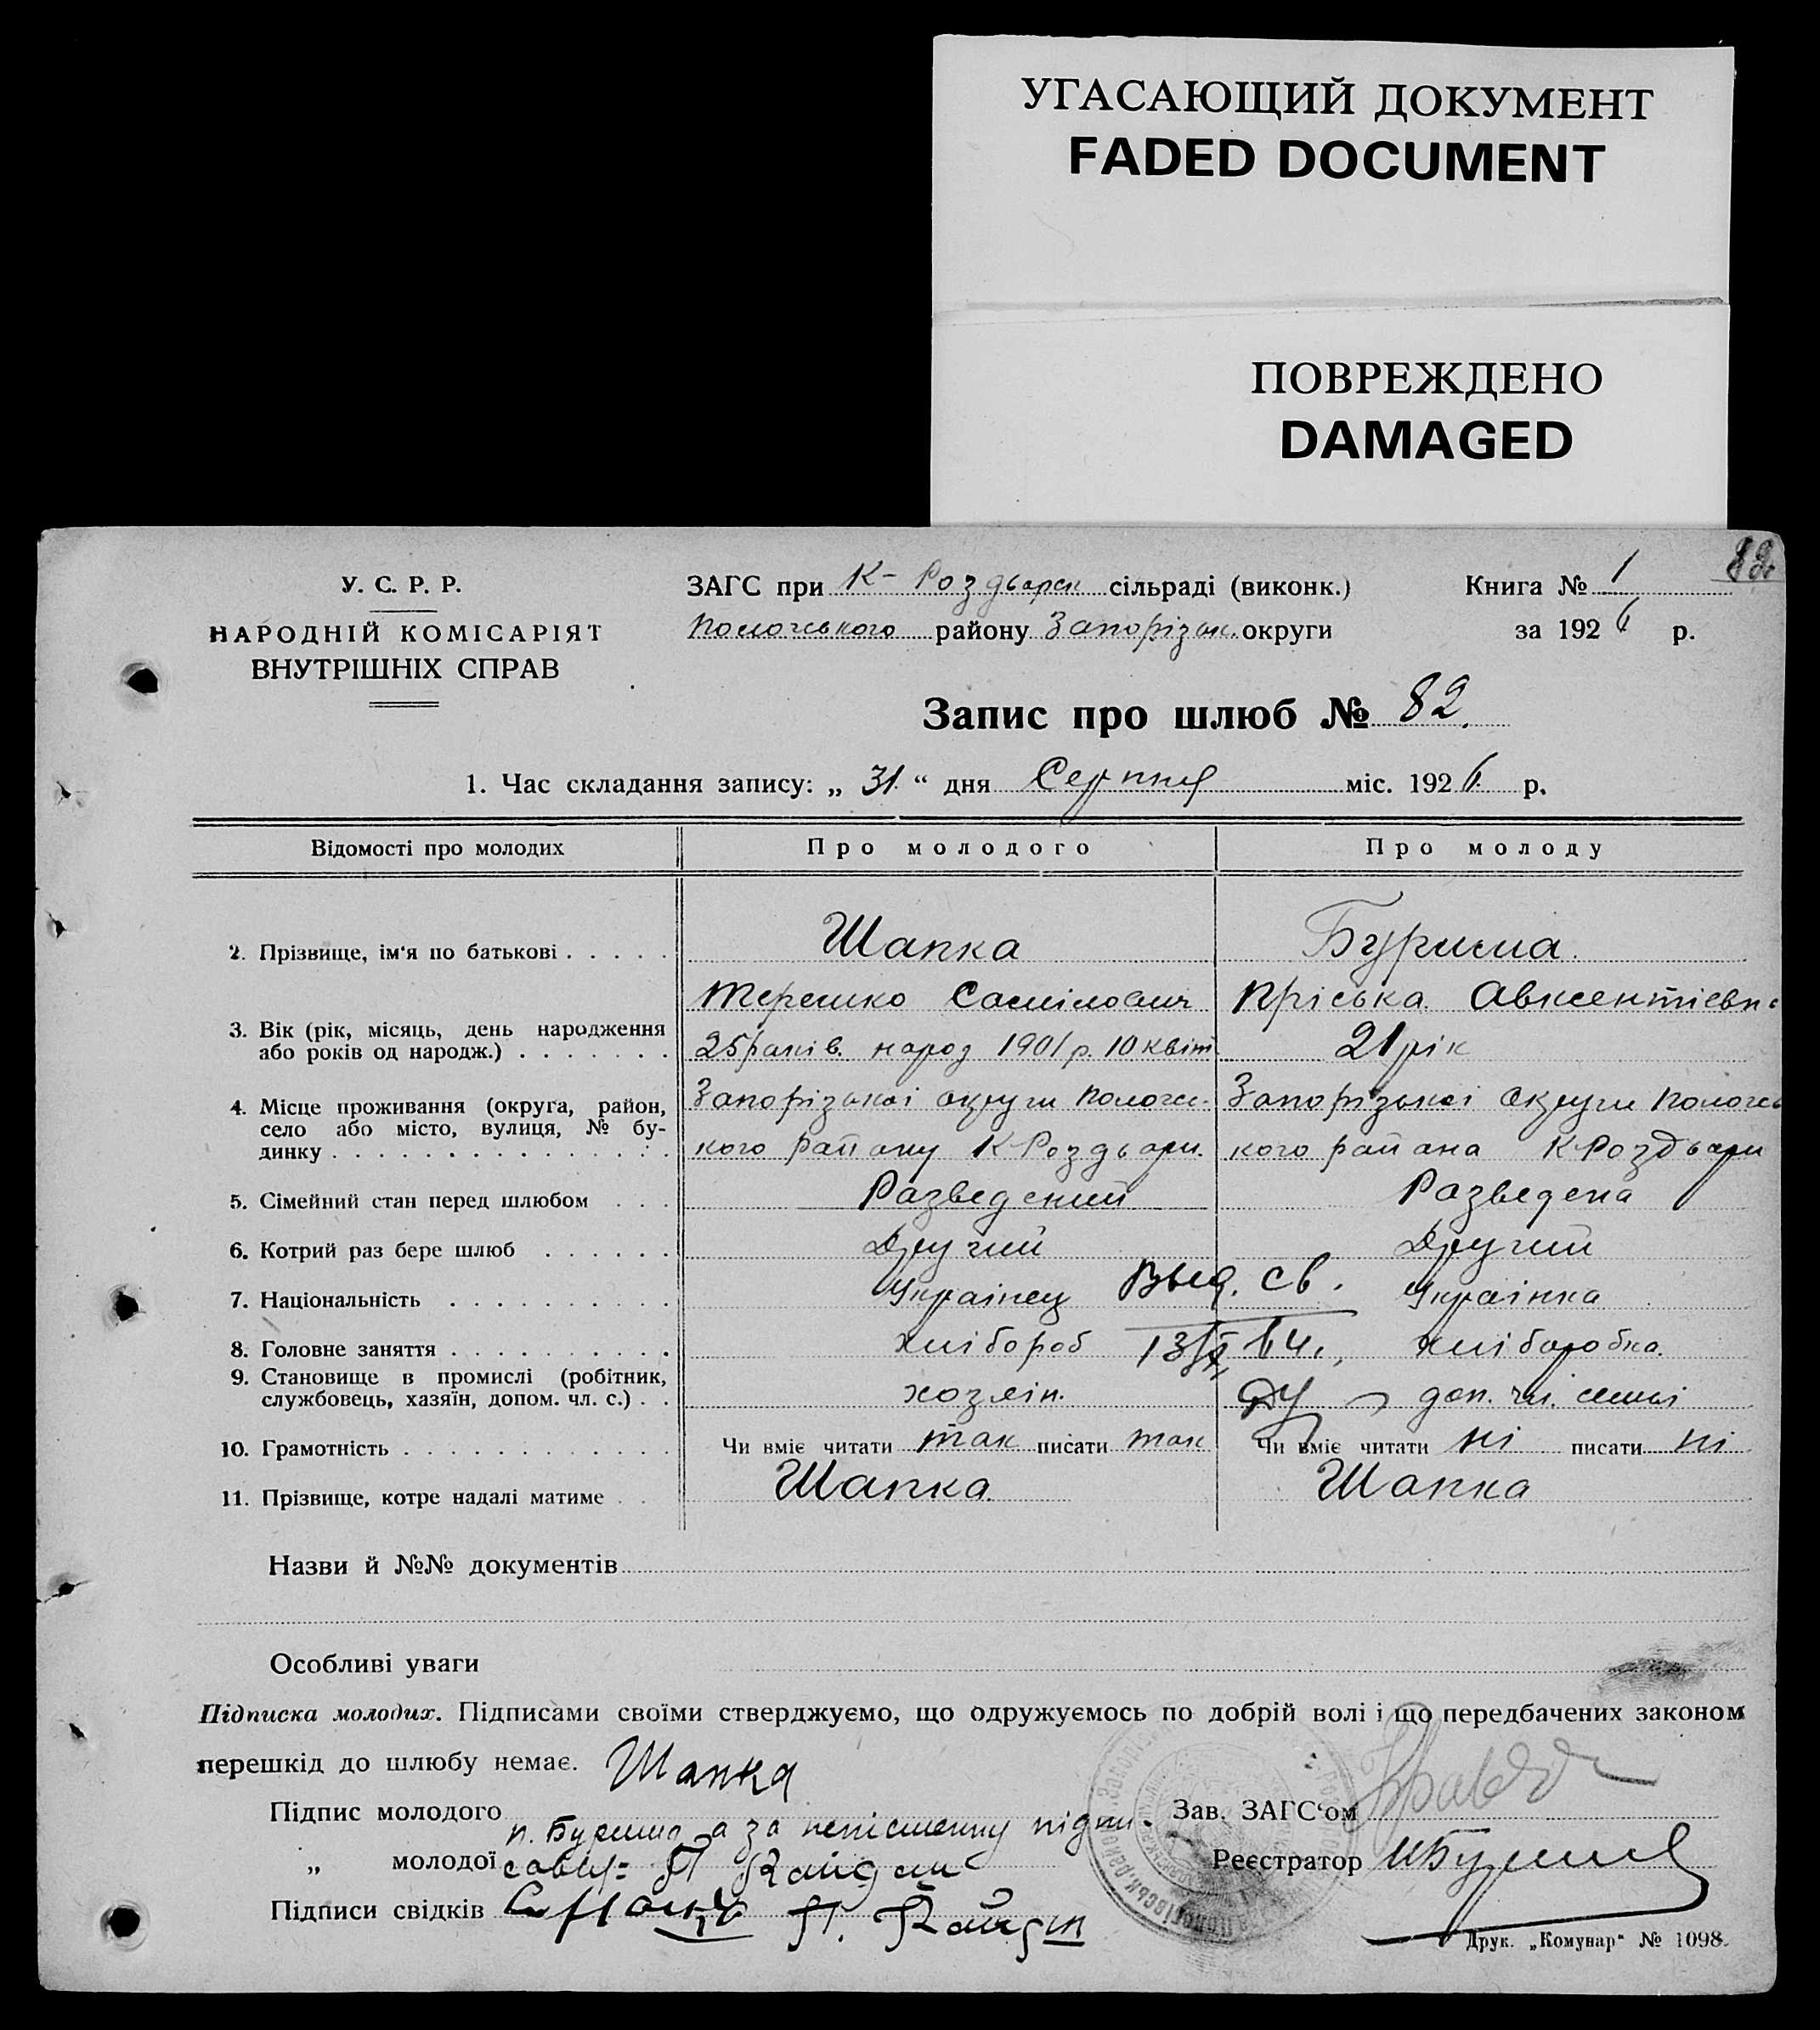 УГАСАЮЩИЙ ДОКУМЕНТ
FADED DOCUMENT
ПОВРЕЖДЕНО
DAMAGED
82
У. С. Р. Р.
НАРОДНІЙ КОМІСАРІЯТ
ВНУТРІШНІХ СПРАВ
ЗАГС при К-Роздорск сільраді (виконк.)
Пологського району Запорізьк. округи
Книга № 1
за 1926 р.
Запис про шлюб № 82.
1. Час складання запису: „ 31 “ дня Серпня міс. 1926 р.
Відомості про молодих Про молодого Про молоду
2. Прізвище, ім‘я по батькові Шапка Бурима
Терешко Самілович Пріська Авксентієвн
3. Вік (рік, місяць, день народження
або років од народж.) 25 років. народ 1901 р. 10 квіт 21 рік
4. Місце проживання (округа, район,
село або місто, вулиця, № бу-
динку Запорізької округи Пологсь- Запорізької округи Пологсь
кого району К Роздори. кого района К Роздори
5. Сімейний стан перед шлюбом Разведений Разведена
6. Котрий раз бере шлюб Другий Другий
7. Національність Українец Выд. св. Українка
8. Головне заняття хлібороб хліборобка.
9. Становище в промислі (робітник,
службовець, хазяїн, допом. чл. с.) хозяїн. доп. чл. семьі
10. Грамотність Чи вміє читати так писати так Чи вміє читати ні писати ні
11. Прізвище, котре надалі матиме Шапка Шапка
Назви й №№ документів
Особливі уваги
Підписка молодих. Підписами своїми стверджуємо, що одружуємось по добрій волі і що передбачених законом
перешкід до шлюбу немає.
Підпис молодого Шапка
„ молодої п. Бурима а за неписьменну підпи-
Підписи свідків
Зав. ЗАГС‘ом
Реєстратор
Друк. „Комунар“ № 1098.